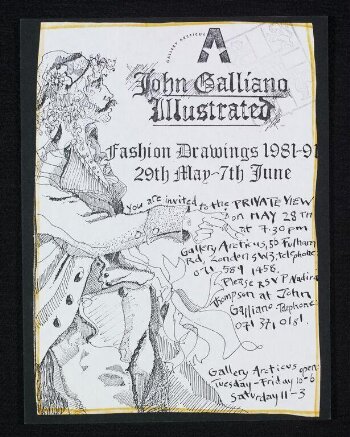 GALLERY ARCTICUS
John Galliano
Illustrated
Fashion Drawings 1981-91
29th May-7th June
You are invited to the PRIVATE VIEW
on MAY 28TH
at 7.30pm
Gallery Arcticus, 56 Fulham
Rd, London SW3, telephone
071 589 1458.
Please RSVP Nadira
Thompson at John
Galliano. Telephone
071 371 0181.
Gallery Arcticus open
Tuesday-Friday 10-6
Saturday 11-3